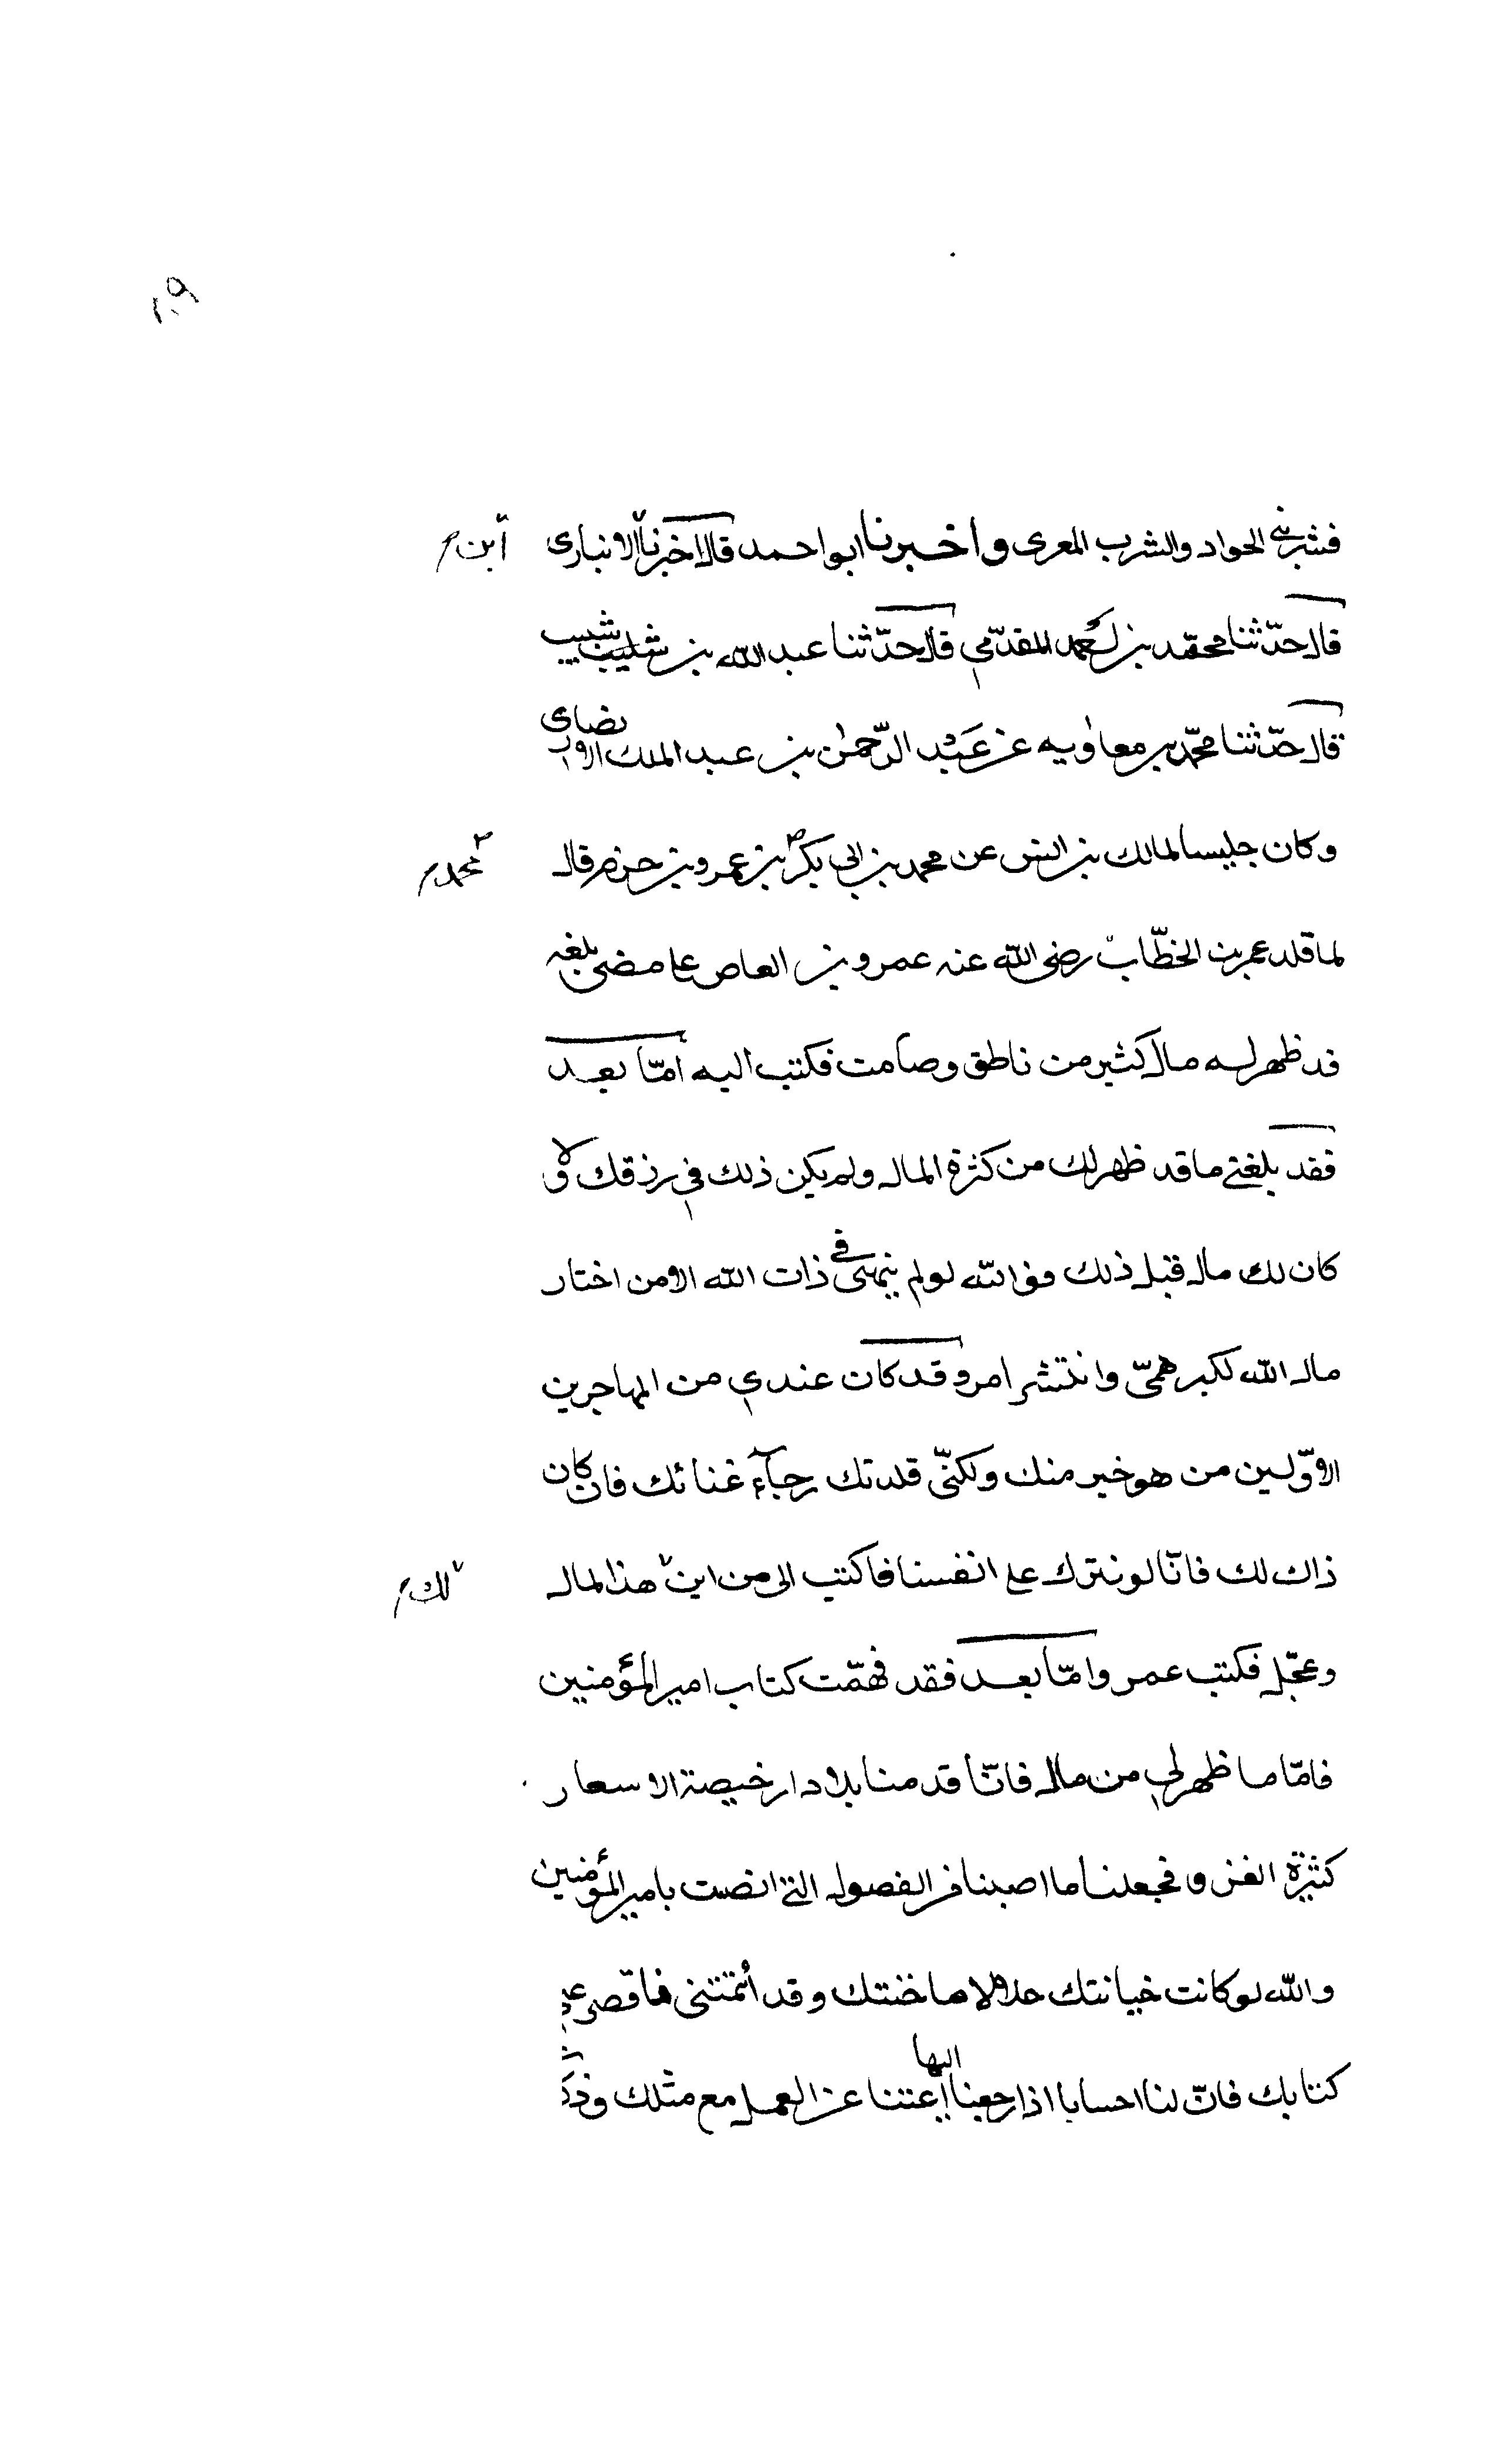 ٢٠٩
فشربني الجواد والشرب المعرى واخبرنا ابواحمد قال اخبرنا الانبارى ابن م
قال حدّثنا محمّد بن المقدّمي قال حدّثنا عبد الله بن شبيب شبيب
قال حدّثنا محمّد بن معاوية عن عبد الرّحمٰن بن عبد الملك الانصاري
وكان جليسا لمالك بن انس عن محمد بن ابي بكر بن عمرو بن حزم قال محمد م
لما قلد عمر بن الخطّاب رضى الله عنه عمرو بن العاص على مضى بلغه
قد ظهر له مال كثير من ناطق وصامت فكتب اليه امّا بعد
فقد بلغني ما قد ظهر لك من كثرة المال ولم يكن ذلك في رزقك ولا
كان لك مال قبل ذلك فو الله لو لم يهمنى في ذات الله الا من اختار
مال الله لكبر همّي وانتشر امر وقد كان عندي من المهاجرين
الاوّلين من هو خير منك ولكنّي قلدتك رجآء غنائك فان كان
ذاك لك فانّا لو نترك على انفسنا فاكتب الى من اين هذا المال لك م
وعجّل فكتب عمرو امّا بعد فقد فهمّت كتاب امير المؤمنين
فامّا ما ظهر لي من مال فانّا قدمنا بلادا رخيصة الاسعار
كثيرة الغزو فجعلنا ما اصبنا فى الفصول التى اتصت بامير المؤمنين
والله لو كانت خيانتك حلالا ما خنتك وقد أئتمنتني فاقصر عني
كتابك فانّ لنا احسابا اذا رجعنا اليها اغنتنا عن العمل مع مثلك وذكر